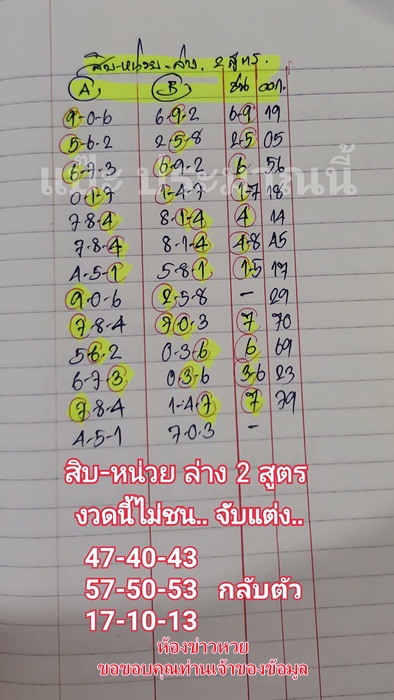 สิบ-หน่วย-ล่าง. 2 สูตร.
A, B, ชน ออก.
9-0-6 6-9-2 6-9 19
5-6-2 2-5-8 2-5 05
6-7-3 6-9-2 6 56
แป๊ะ ประมาณนี้
0-1-7 1-4-7 1-7 18
7-8-4 8-1-4 4 14
7-8-4 8-1-4 4-8 45
4-5-1 5-8-1 1-5 17
9-0-6 2-5-8 - 29
7-8-4 7-0-3 7 70
5-6-2 0-3-6 6 69
6-7-3 0-3-6 3-6 23
7-8-4 1-4-7 7 79
4-5-1 7-0-3 -
สิบ-หน่วย ล่าง 2 สูตร
งวดนี้ไม่ชน.. จับแต่ง..
47-40-43
57-50-53 กลับตัว
17-10-13
ห้องข่าวหวย
ขอขอบคุณท่านเจ้าของข้อมูล